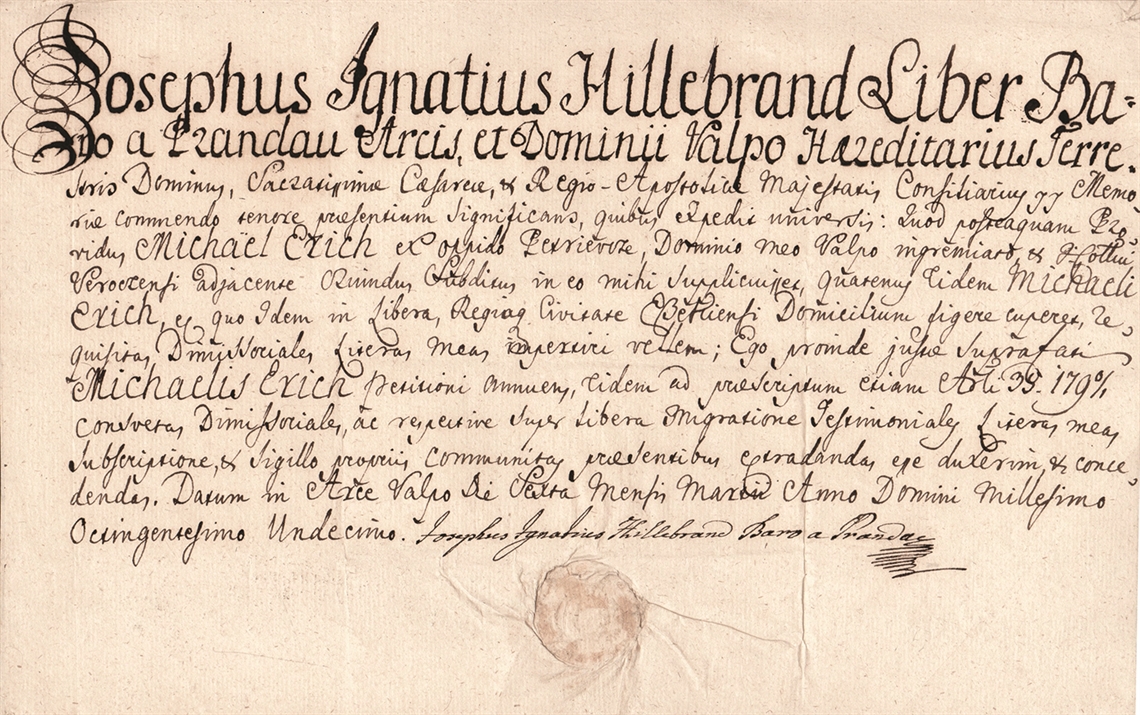 Josephus Ignatius Hillebrand Liber Ba-
ro a Prandau Arcis, et Dominii Valpo Hæreditarius Terre-
stris Dominus, Sacratissimæ Cæsareæ, & Regio-Apostolicæ Majestatis Consiliarius Memo-
riæ commendo tenore præsentium significans, quibus expedit universis: Quod posteaquam Pro-
vidus Michaël Erich ex oppido Petrievcze, Dominio meo Valpo ingremiato, &
Veroczensi adjacente Oriundus Subditus in eo mihi supplicuisset, quatenus Eidem Michaeli
Erich, ex quo Idem in Libera, Regiaq Civitate Domicilium figere cuperet, re-
quisitas Dimissoriales Literas meas impertiri vellem; Ego proinde justæ Suprafati
Michaelis Erich petitioni annuens, Eidem ad præscriptum etiam Arli 35. 1790/1
consvetas Dimissoriales, ac respective super libera Migratione Testimoniales Literas meas
subscriptione, & sigillo propriis communitas præsentibus extradandas esse duxerim, & conce-
dendas. Datum in Arce Valpo Die Sexta Mensis Martii Anno Domini Millesimo
Octingentesimo Undecimo. Josephus Ignatius Hillebrand Baro a Prandau